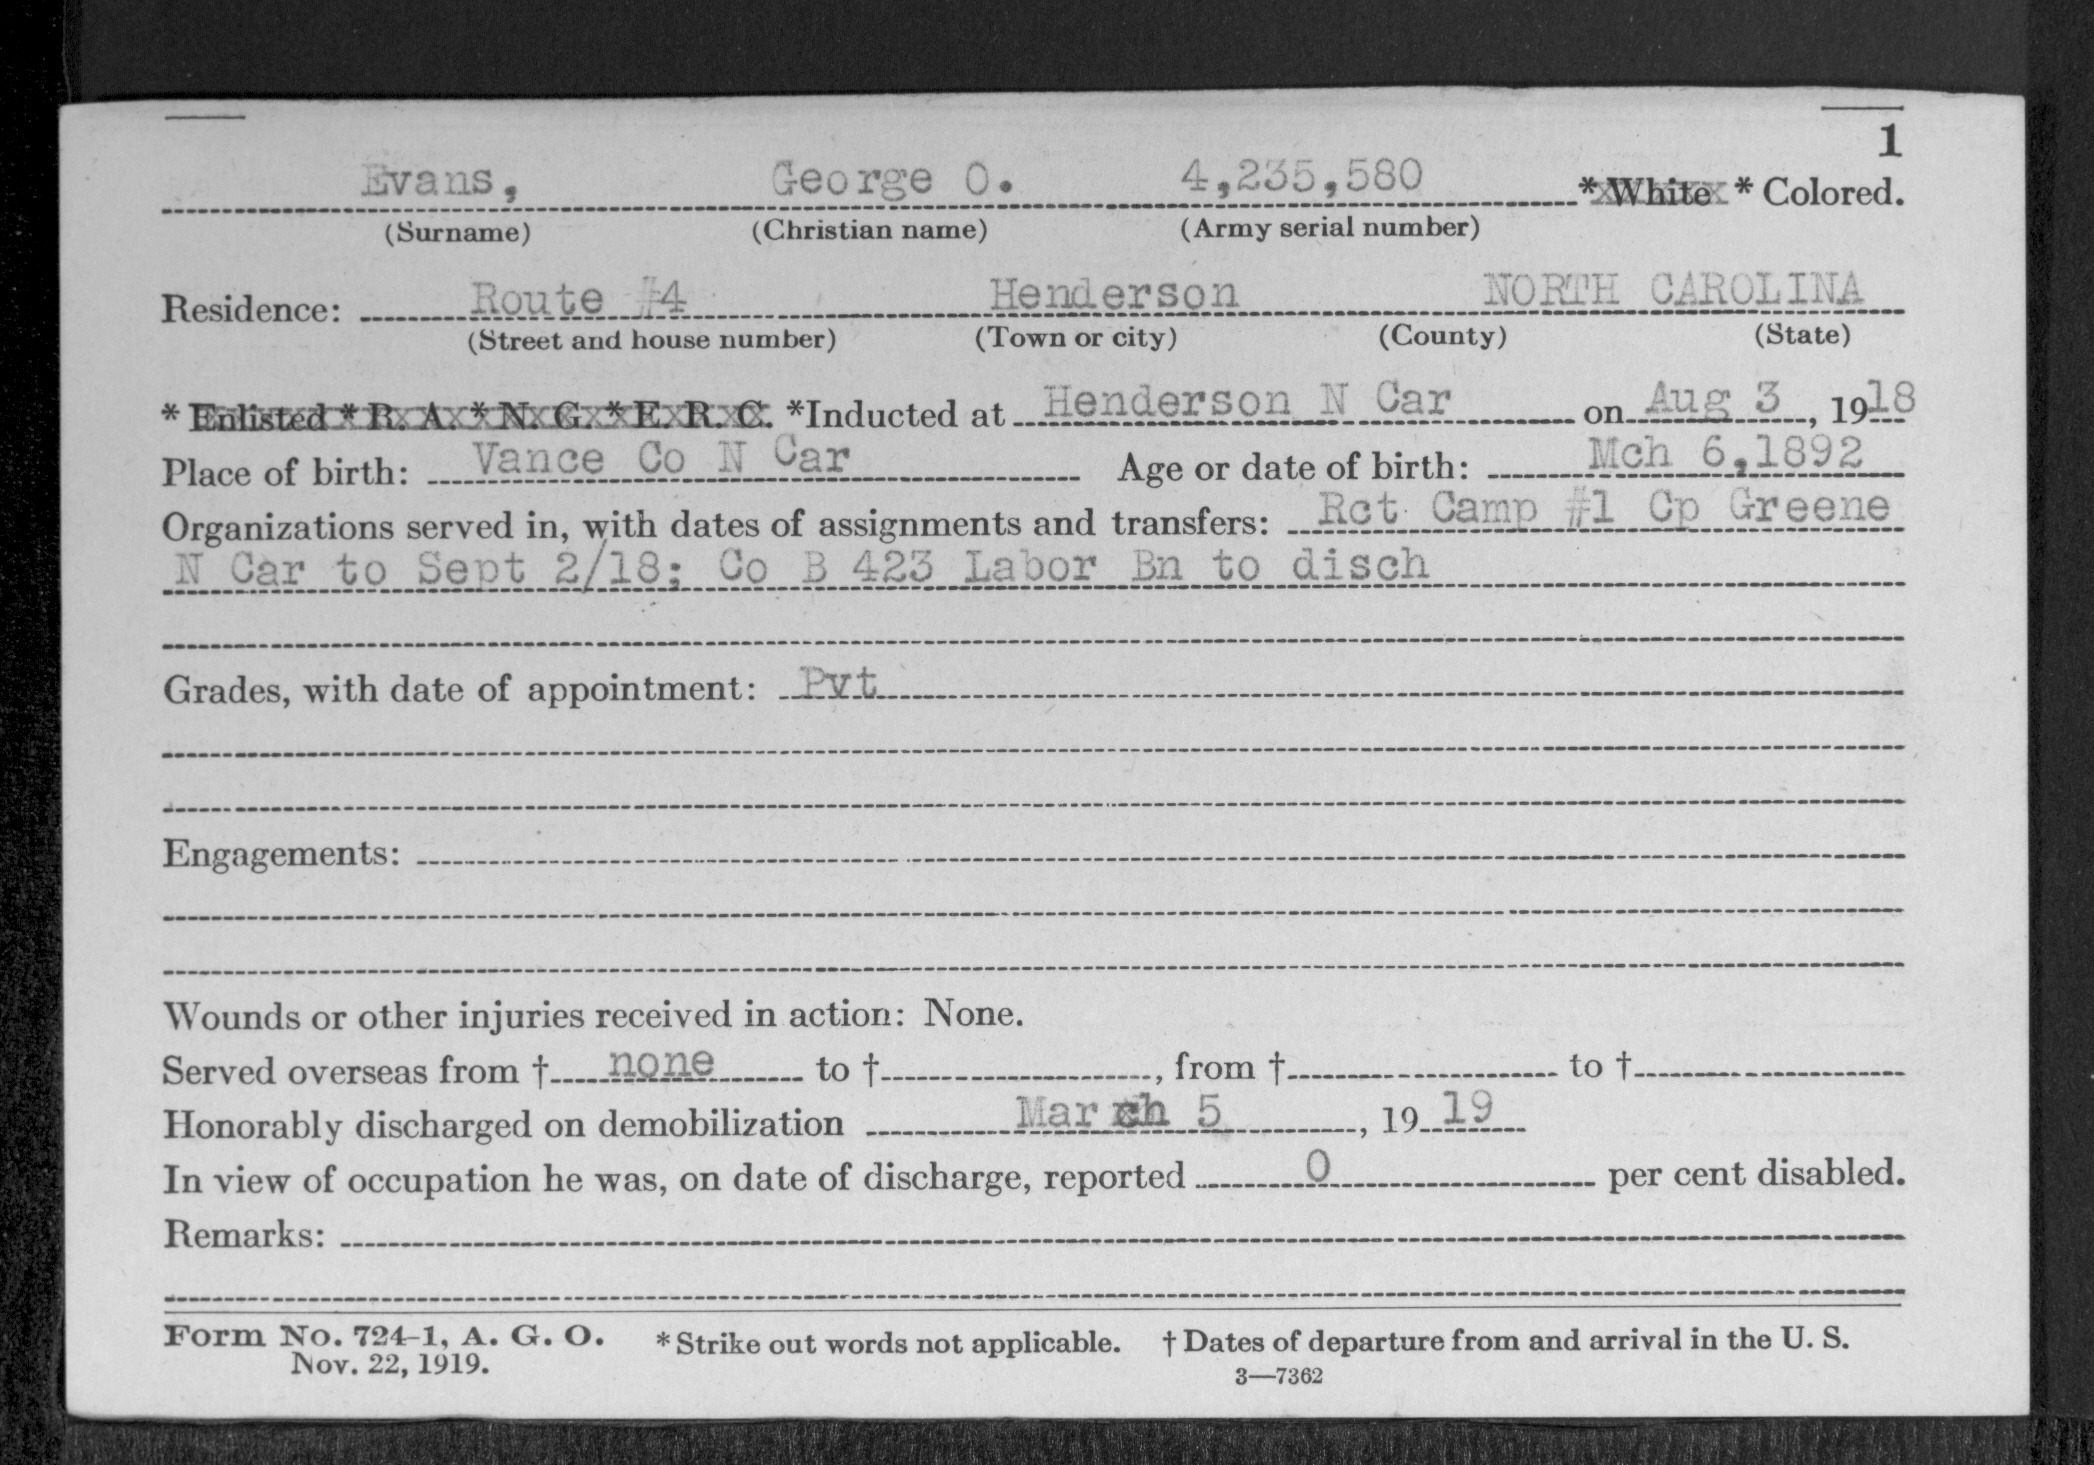 1
Evans, George O. 4,235,580 *White * Colored.
(Surname) (Christian name) (Army serial number)
Residence: Route #4 Henderson NORTH CAROLINA
(Street and house number) (Town or city) (County) (State)
* Enlisted * R. A. * N. G. * E. R. C. *Inducted at Henderson N Car on Aug 3, 1918
Place of birth: Vance Co N Car Age or date of birth: Mch 6,1892
Organizations served in, with dates of assignments and transfers: Rct Camp #1 Cp Greene
N Car to Sept 2/18; Co B 423 Labor Bn to disch
Grades, with date of appointment: Pvt
Engagements:
Wounds or other injuries received in action: None.
Served overseas from † none to †, from † to †
Honorably discharged on demobilization March 5, 1919
In view of occupation he was, on date of discharge, reported 0 per cent disabled.
Remarks:
Form No. 724-1, A. G. O. * Strike out words not applicable. † Dates of departure from and arrival in the U. S.
Nov. 22, 1919. 3—7362